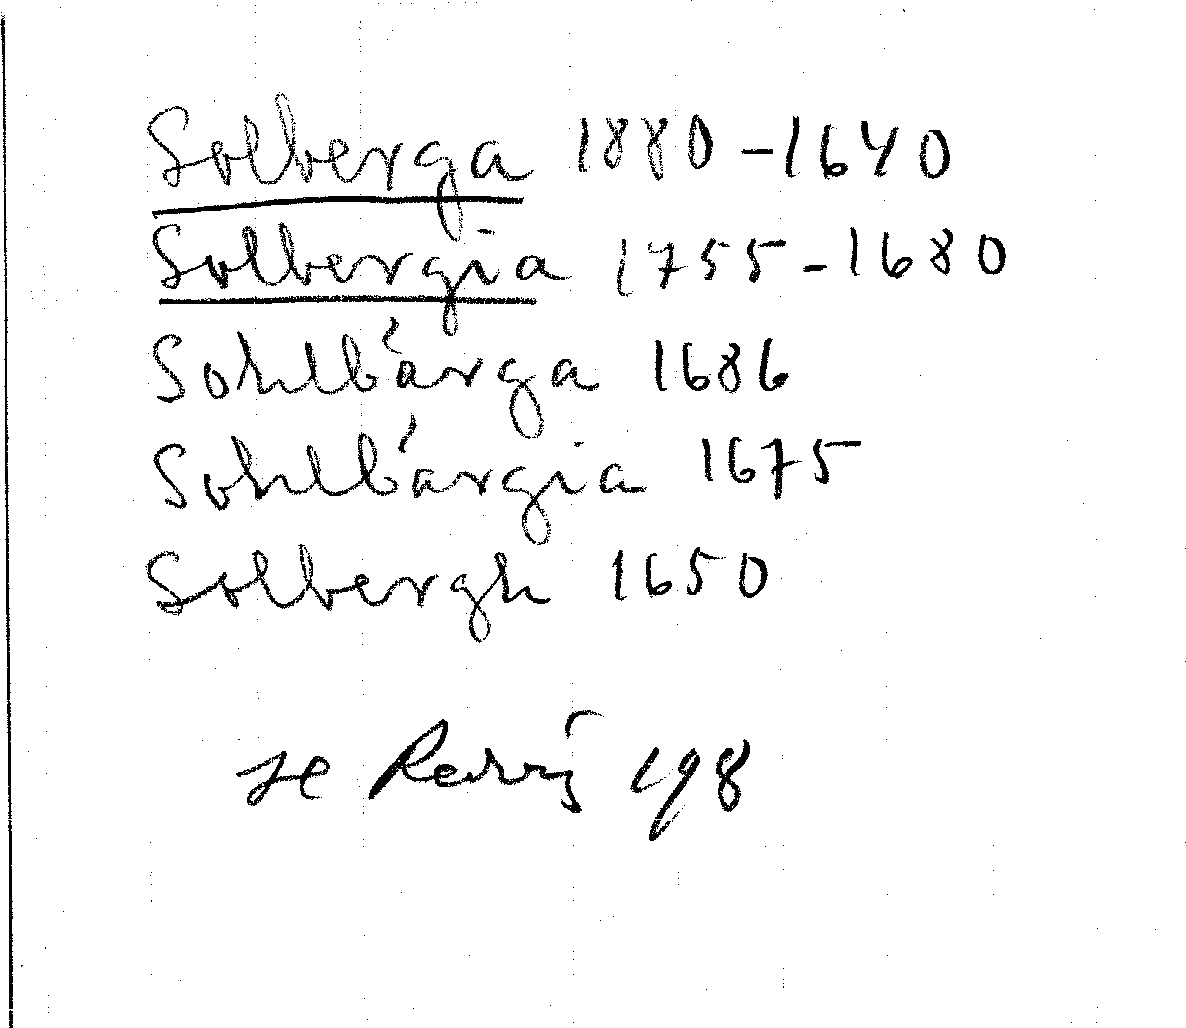 Solberga 1880-1640
Solbergia 1755-1680
Sohlbárga 1686
Sohlbárgia 1675
Solbergh 1650
se 198